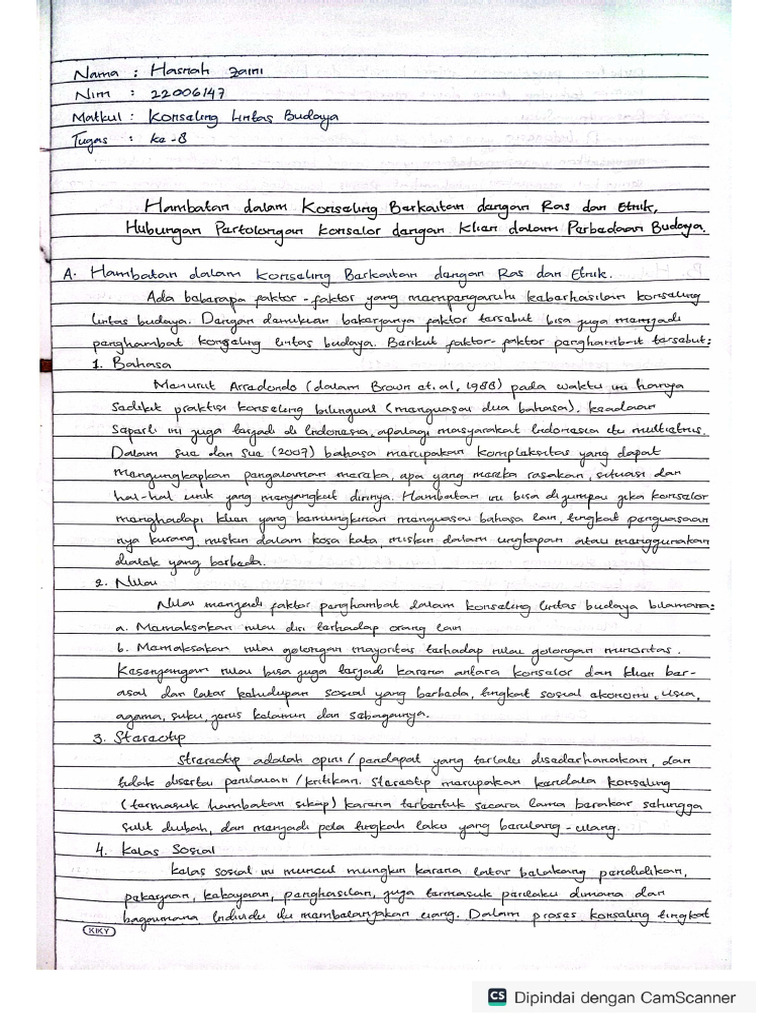 Nama : Hasnah Zaini
Nim : 22006147
Matkul : Konseling Lintas Budaya
Tugas : ke-8
Hambatan dalam Konseling Berkaitan dengan Ras dan Etnik,
Hubungan Pertolongan Konselor dengan Klien dalam Perbedaan Budaya.
A. Hambatan dalam Konseling Berkaitan dengan Ras dan Etnik.
Ada beberapa faktor-faktor yang mempengaruhi keberhasilan konseling
lintas budaya. Dengan demikian bekerjanya faktor tersebut bisa juga menjadi
penghambat konseling lintas budaya. Berikut faktor-faktor penghambat tersebut:
1. Bahasa
Menurut Arredondo (dalam Brown et.al, 1988) pada waktu ini hanya
sedikit praktisi konseling bilingual (menguasai dua bahasa). keadaan
seperti ini juga terjadi di Indonesia, apalagi masyarakat Indonesia itu multietnis.
Dalam sue dan sue (2007) bahasa merupakan kompleksitas yang dapat
mengungkapkan pengalaman mereka, apa yang mereka rasakan, situasi dan
hal-hal unik yang menyangkut dirinya. Hambatan ini bisa dijumpai jika konselor
menghadapi klien yang kemungkinan menguasai bahasa lain, tingkat penguasaan
nya kurang, miskin dalam kosa kata, miskin dalam ungkapan atau menggunakan
dialek yang berbeda.
2. Nilai
Nilai menjadi faktor penghambat dalam konseling lintas budaya bilamana:
a. Memaksakan nilai diri terhadap orang lain
b. Memaksakan nilai golongan mayoritas terhadap nilai golongan minoritas.
Kesenjangan nilai bisa juga terjadi karena antara konselor dan klien ber-
asal dari latar kehidupan sosial yang berbeda, tingkat sosial ekonomi, usia,
agama, suku, jenis kelamin dan sebagainya.
3. Stereotip
Strereotip adalah opini/pendapat yang terlalu disederhanakan, dan
tidak disertai penilaian/kritikan. Stereotip merupakan kendala konseling
(termasuk hambatan sikap) karena terbentuk secara lama berakar sehingga
sulit diubah, dan menjadi pola tingkah laku yang berulang-ulang.
4. Kelas Sosial
Kelas sosial ini muncul mungkin karena latar belakang pendidikan,
pekerjaan, kekayaan, penghasilan, juga termasuk perilaku dimana dan
bagaimana Individu itu membelanjakan uang. Dalam proses konseling tingkat
KIKY
CS Dipindai dengan CamScanner